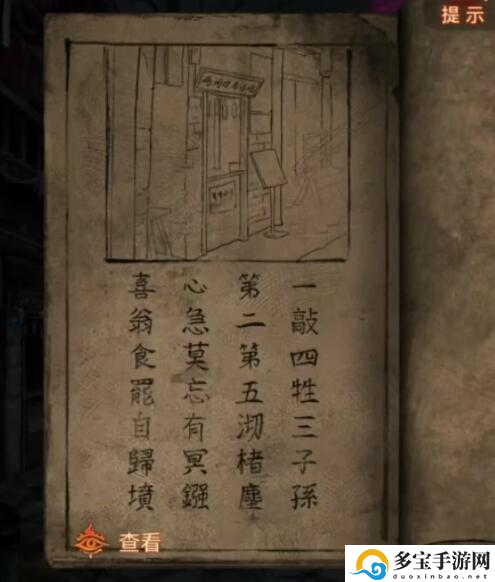 提示
一敲四牲三子孫
第二第五沏楮塵
心急莫忘有冥鏹
喜翁食罷自歸墳
查看
多宝手游网
www.duoxinbao.net